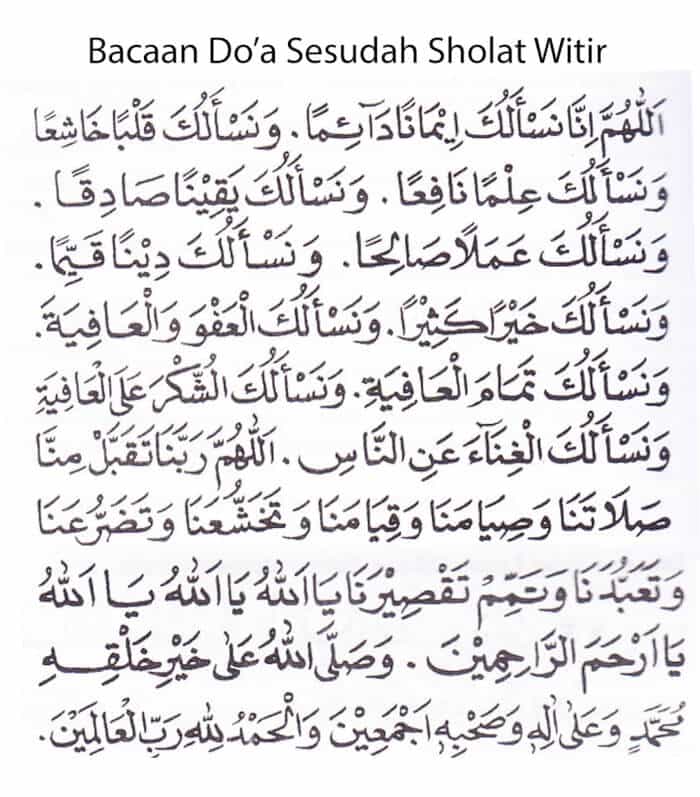 Bacaan Do’a Sesudah Sholat Witir
اَللّٰهُمَّ اِنَّا نَسْأَلُكَ اِيْمَانًا دَآئِمًا. وَنَسْأَلُكَ قَلْبًا خَاشِعًا
وَنَسْأَلُكَ عِلْمًا نَافِعًا. وَنَسْأَلُكَ يَقِيْنًا صَادِقًا.
وَنَسْأَلُكَ عَمَلًا صَالِحًا. وَنَسْأَلُكَ دِيْنًا قَيِّمًا.
وَنَسْأَلُكَ خَيْرًا كَثِيْرًا. وَنَسْأَلُكَ الْعَفْوَ وَالْعَافِيَةَ.
وَنَسْأَلُكَ تَمَامَ الْعَافِيَةِ. وَنَسْأَلُكَ الشُّكْرَ عَلَى الْعَافِيَةِ
وَنَسْأَلُكَ الْغِنَآءَ عَنِ النَّاسِ. اَللّٰهُمَّ رَبَّنَا تَقَبَّلْ مِنَّا
صَلَاتَنَا وَصِيَامَنَا وَقِيَامَنَا وَتَخَشُّعَنَا وَتَضَرُّعَنَا
وَتَعَبُّدَنَا وَتَمِّمْ تَقْصِيْرَنَا يَا اَللهُ يَا اَللهُ يَا اَللهُ
يَا اَرْحَمَ الرَّاحِمِيْنَ. وَصَلَّى اللهُ عَلٰى خَيْرِ خَلْقِهِ
مُحَمَّدٍ وَعَلٰى اٰلِهِ وَصَحْبِهِ اَجْمَعِيْنَ وَالْحَمْدُ لِلّٰهِ رَبِّ الْعَالَمِيْنَ.